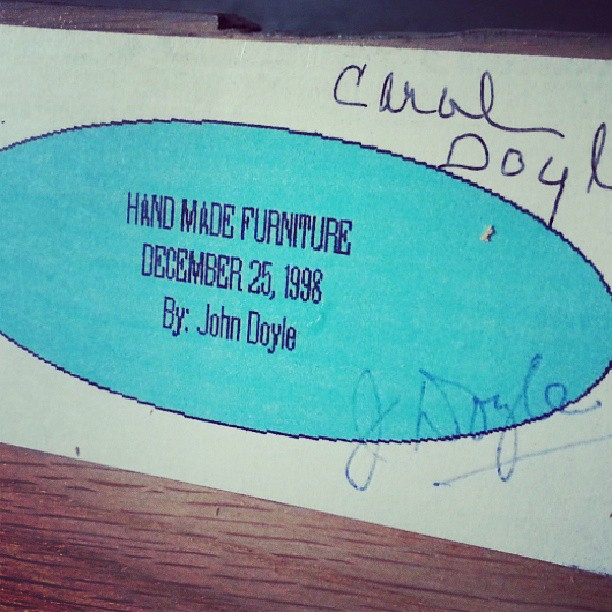 Carol
Doyle
HAND MADE FURNITURE
DECEMBER 25, 1998
By: John Doyle
J Doyle